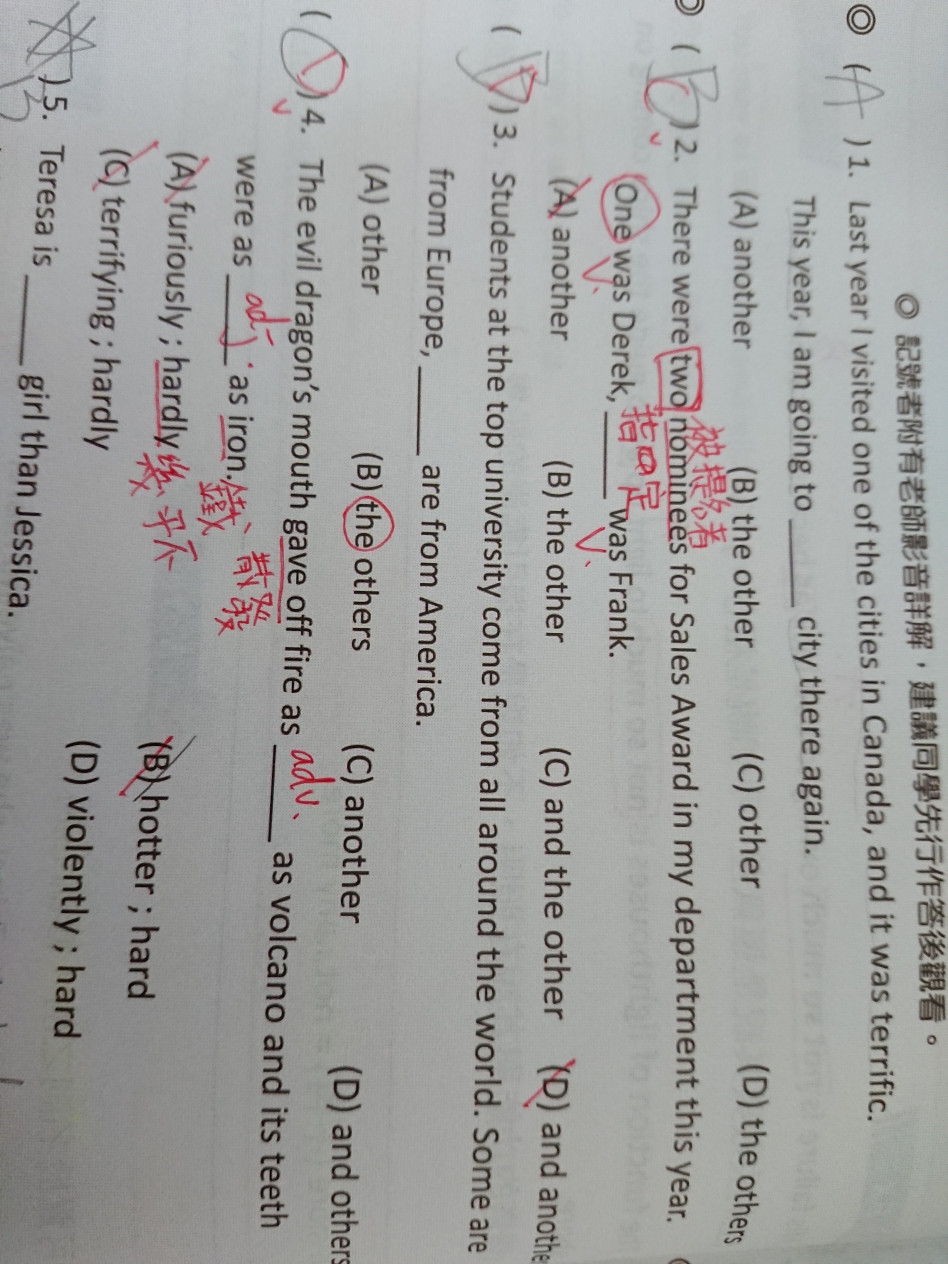 ◎ 記號者附有老師影音詳解，建議同學先行作答後觀看。
◎ ( A ) 1. Last year I visited one of the cities in Canada, and it was terrific.
This year, I am going to ______ city there again.
(A) another (B) the other (C) other (D) the others
被提名者
( C ) 2. There were two nominees for Sales Award in my department this year.
指定
One was Derek, ______ was Frank.
(A) another (B) the other (C) and the other (D) and anothe
( D ) 3. Students at the top university come from all around the world. Some are
from Europe, ______ are from America.
(A) other (B) the others (C) another (D) and others
( D ) 4. The evil dragon's mouth gave off fire as ______ as volcano and its teeth
adv.
散發
were as ______ as iron.
adj.
鐵
(A) furiously ; hardly (B) hotter ; hard
幾乎不
(C) terrifying ; hardly (D) violently ; hard
) 5. Teresa is ______ girl than Jessica.